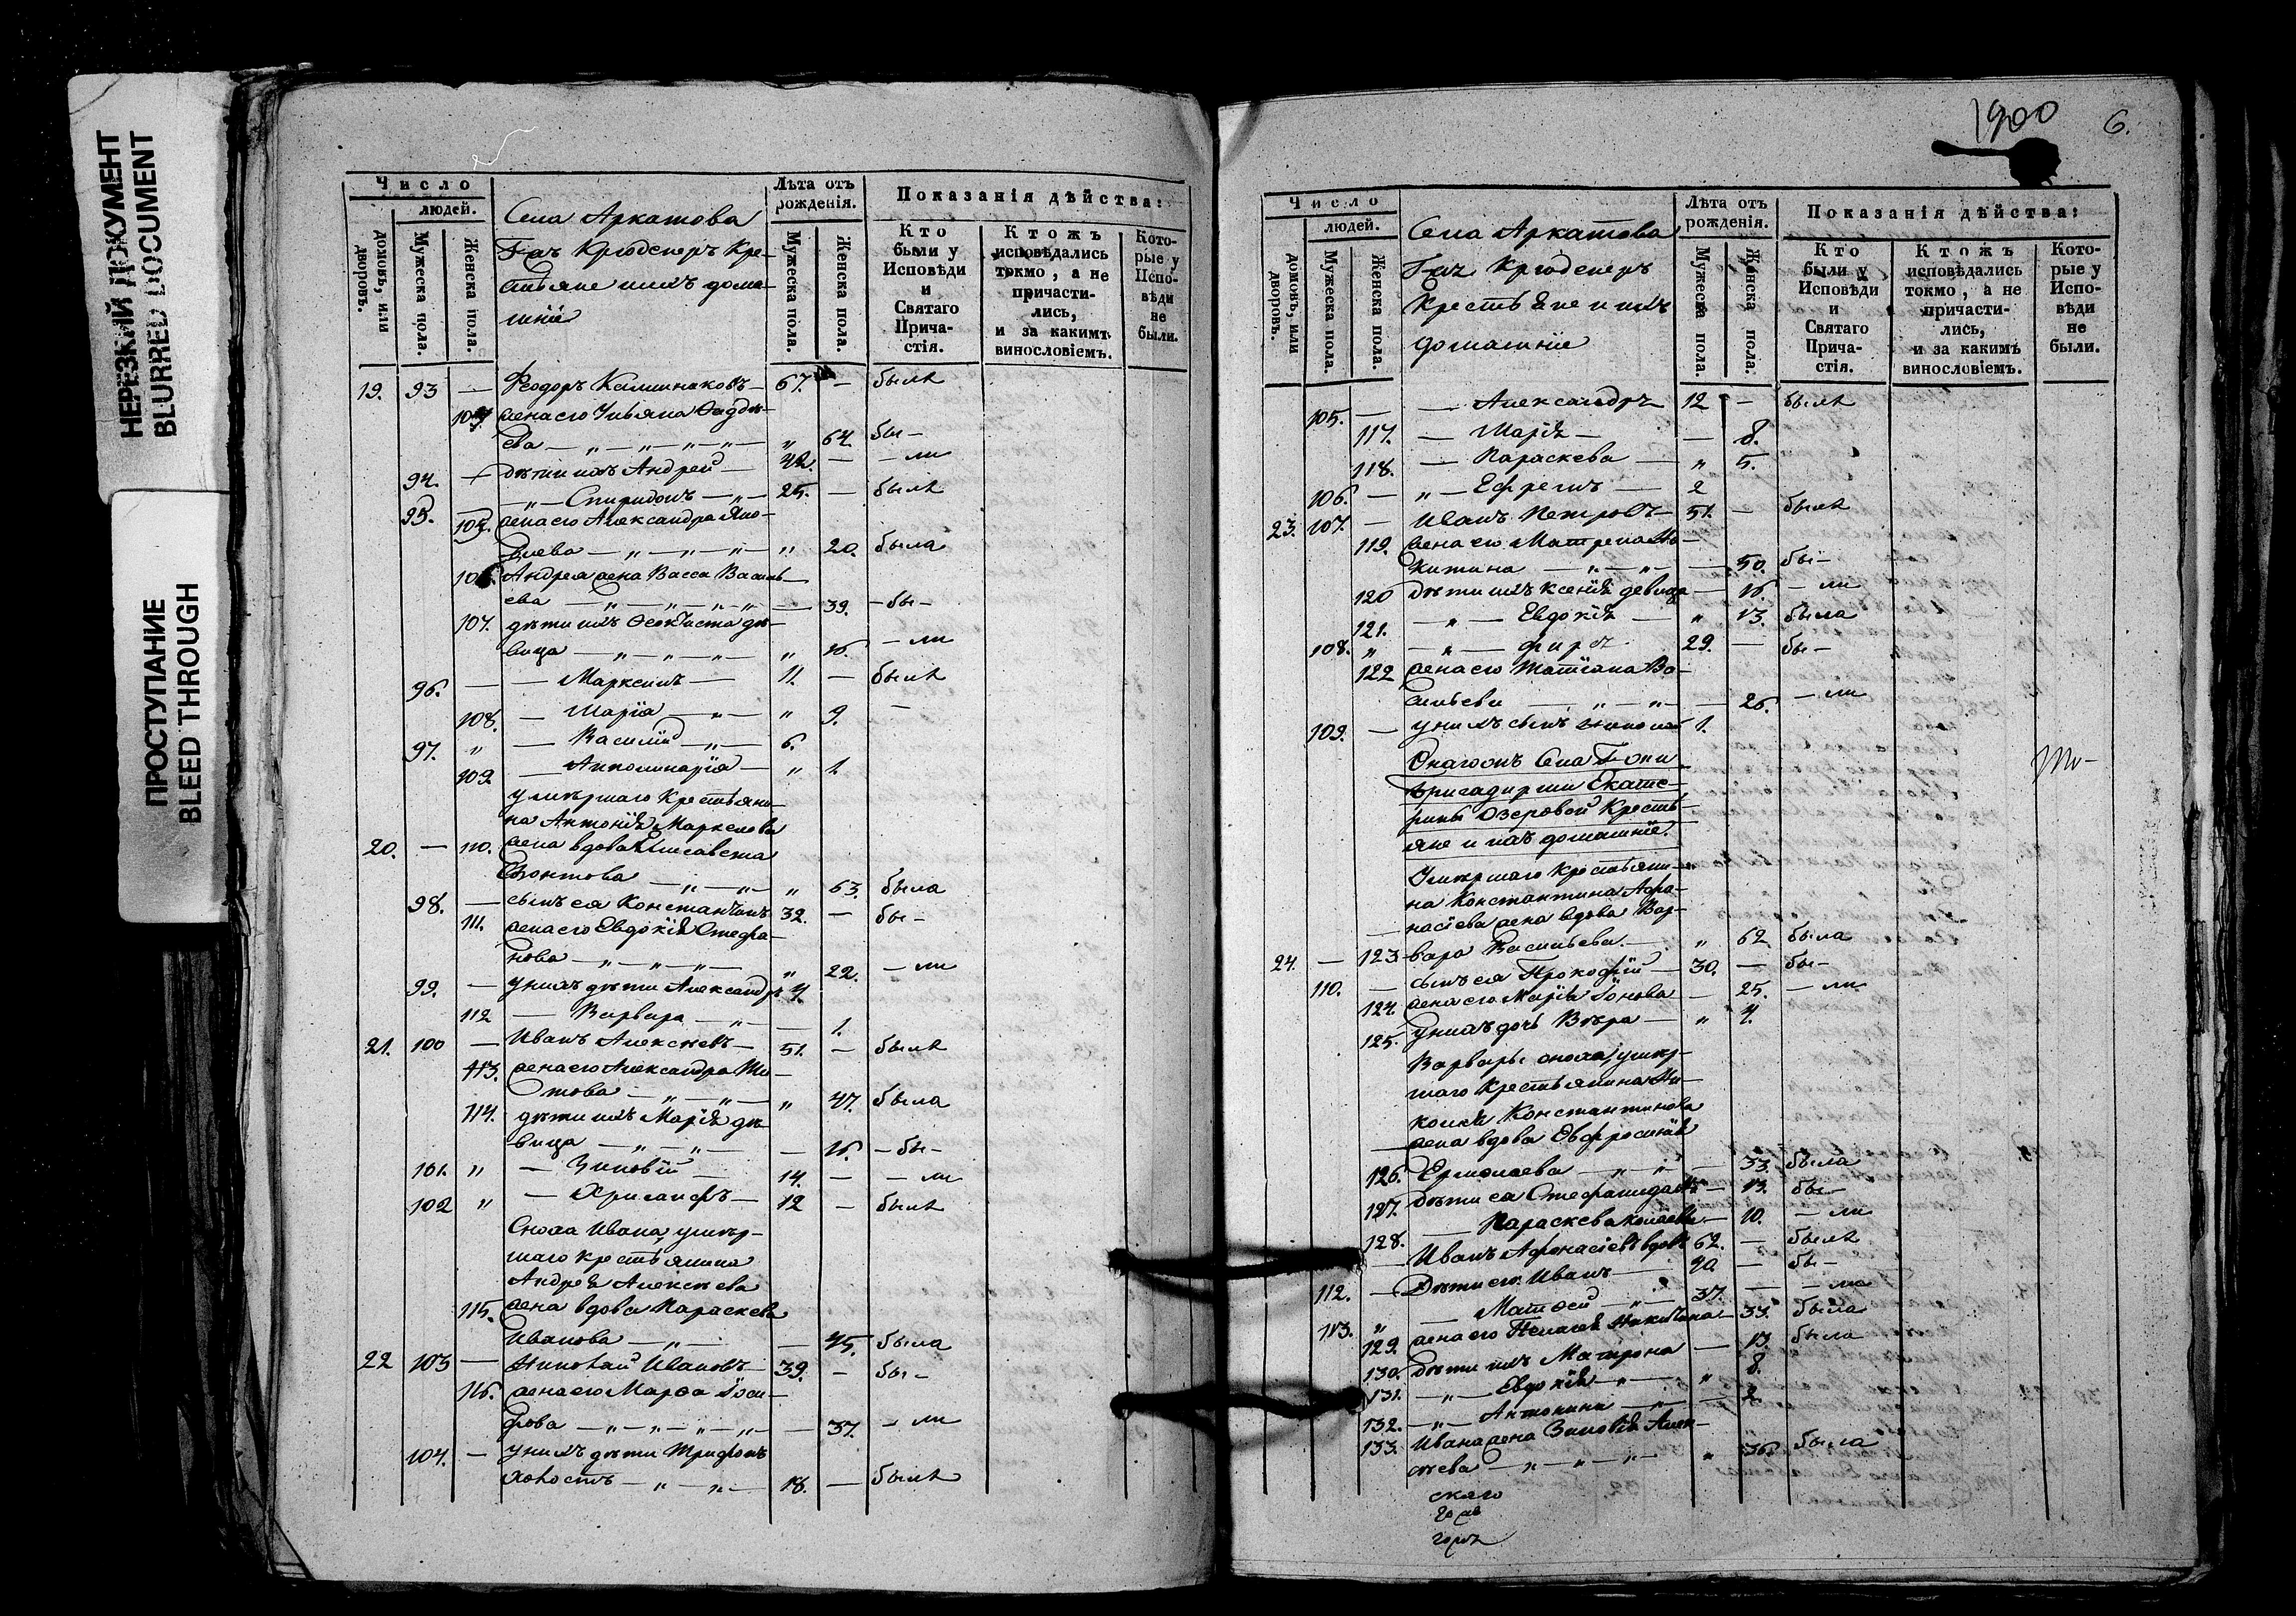 НЕРЕЗКИЙ ДОКУМЕНТ
BLURRED DOCUMENT
ПРОСТУПАНИЕ
BLEED THROUGH
Число
людей.
домовъ, или дворовъ.
Мужеска пола.
Женска пола.
Села Аркатова
Крестьяне и ихъ дома-
шніе
Лѣта отъ рожденія.
Мужеска пола.
Женска пола.
Показанія дѣйства:
Кто были у Исповѣди и Святаго Прича-стія.
Ктожъ исповѣдались токмо, а не причасти-лись, и за какимъ винословіемъ.
Кото-рые у Испо-вѣди не были.
19. 93 — Ѳеодоръ — 67. — былъ
жена его Ульяна
ева — „ — „ — „ — „ 64. бы —
94. — дѣти ихъ Андрей — 42. — — ли
95. — „ — Спиридонъ — „ — 25. — былъ
105. жена его Александра
влева — „ — „ — „ — „ 20. была
106. Андрея жена Васса Василь-
ева — „ — „ — „ — „ — 39. — бы —
107. дѣти ихъ Ѳеоктиста дѣ-
вица — „ — „ — „ — „ 16. — ли
96. — — — 11. — былъ
108. — Марія — „ — „ 9. —
97. „ — Василій — „ — 6.
109 — — „ 1.
умершаго крестьяни-
на Антонія Маркелова
20. — 110. жена вдова Елисавета
— „ — „ — „ 63 была
98. — сынъ ея Константинъ 32. — бы —
111. жена его Евдокія Стефа-
нова — „ — „ — „ — „ 22. — ли
99. — у нихъ дѣти Александръ 4.
112 — Варвара — „ — — 1.
21. 100 — Иванъ Алексѣевъ — 51. — былъ
113. жена его Александра Ти-
това — „ — „ — „ 47. была
114. дѣти ихъ Марія дѣ-
вица — „ — „ — — 16. — бы —
101. „ — Зиновій — 14. — — ли
102 „ — Хрисанфъ — 12 — былъ
Сноха Ивана, умер-
шаго крестьянина
Андрея Алексѣева
115. жена вдова Параскева
Иванова — „ — — 45. была
22 103 — Николай Ивановъ — 39. — бы —
116. жена его Марѳа Іоси-
фова — „ — „ — „ — „ — — 37. — ли
104. — у нихъ дѣти Трифонъ
холостъ — „ — „ — 18. — былъ
1900
6.
Число
людей.
домовъ, или дворовъ.
Мужеска пола.
Женска пола.
Села Аркатова
Крестьяне и ихъ
домашніе
Лѣта отъ рожденія.
Мужеска пола.
Женска пола.
Показанія дѣйства:
Кто были у Исповѣди и Святаго Прича-стія.
Ктожъ исповѣдались токмо, а не причасти-лись, и за какимъ винословіемъ.
Кото-рые у Испо-вѣди не были.
105. — — Александръ 12 — былъ
117. — Марія — — 8.
118. — Параскева — „ 5.
106. — „ — Ефремъ — 2
23. 107. — Иванъ Петровъ — 51. — былъ
119. жена его Матрена Ни-
китина — „ — „ — — 50. бы —
120 дѣти ихъ Ксенія девица — 16. — ли
121. — „ — Евдокія — „ 13. была
108. „ — „ — 29. — бы —
122 жена его Татіана Ва-
сильева — „ — „ — — 26. — ли
109. — у нихъ сынъ Николай 1.
Онагожъ Села Г-жи
Бригадирши Екате-
рины Озеровой Кресть-
яне и ихъ домашніе.
Умершаго крестьяни-
на Константина Афа-
насіева жена вдова Вар-
24. — 123 вара Васильева — „ 62 была
110. — сынъ ея Прокофій — 30. — бы —
124. жена его Марія Іонова — 25. — ли
125. у нихъ дочь Вѣра — „ 4.
Варвары сноха, умер-
шаго крестьянина Ни-
колая Константинова
жена вдова Евфросинія
126. Ермолаева — „ — „ — 33. была
127. дѣти ея Стефанида — 13. бы —
128. — Параскева — 10. — ли
— Иванъ Афонасіевъ вдовъ 62. — былъ
112. — Дѣти его Иванъ — 40 — бы —
113. „ — Матѳей — „ — 37. — — ли
129. жена его Пелагея Никитина — 33. была
130. дѣти ихъ Матрона — 13. была
131. — „ — Евдокія — „ — „ 8.
132. — „ — Антонина — „ — 2.
133. Ивана жена Зиновія Алек-
сѣева — „ — „ — „ — „ 36. была